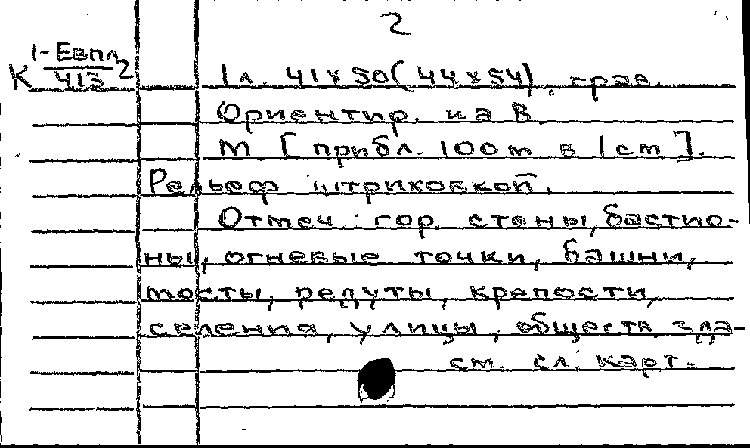 2
К 1-Евпл 2
413
1л. 41×50(44×54), грав.
Ориентир. на В.
М [прибл. 100м в 1см].
Рельеф штриховкой.
Отмеч. гор. стены, бастио-
ны, огневые точки, башни,
мосты, редуты, крепости,
селения, улицы, обществ. зда-
см. сл. карт.